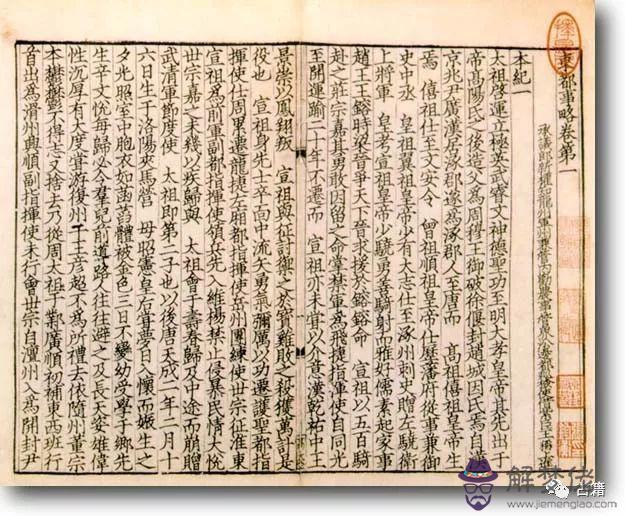 東都事略卷第一
承議郎新權知龍州軍州兼管內勸農事管界沿邊都巡檢使借紫臣王稱上進
本紀一
太祖啓運立極英武睿文神德聖功至明大孝皇帝其先出于
帝高陽氏之後造父為周穆王御破徐偃封趙城因氏焉自漢
京兆尹廣漢居涿郡遂為涿郡人至唐而 高祖僖祖皇帝生
焉 僖祖仕至文安令 曾祖順祖皇帝仕歷藩府從事兼御
史中丞 皇祖翼祖皇帝少有大志仕至涿州刺史贈左驍衛
上將軍 皇考宣祖皇帝少驍勇善騎射而雅好儒素起家事
趙王王鎔時梁晉爭天下晉求援於鎔鎔命 宣祖以五百騎
赴之莊宗嘉其勇敢因留之命掌禁軍為飛捷指揮使自同光
至開運踰二十年不遷而 宣祖亦未甞以介意漢乾祐中王
景崇以鳳翔叛 宣祖與征討禦之於寶雞敗之殺獲萬計是
役也 宣祖身先士卒面中流矢勇氣彌厲以功遷護聖都指
揮使仕周累遷龍捷左廂都指揮使岳州團練使世宗征淮東
宣祖為前軍副都指揮使領兵先入維揚禁止侵暴民情大悅
世宗嘉之未幾以疾歸與 太祖會于壽春歸及中途而崩贈
武清軍節度使 太祖即第二子也以後唐天成二年二月十
六日生于洛陽夾馬營 母昭憲皇后甞夢日入懷而娠生之
夕光照室中胞衣如菡萏體被金色三日不變幼受學于鄉先
生辛文悅每歸必令羣兒前導路人往往避之及長天姿雄偉
性沉厚有大度甞游復州王彥超不為所禮去依隨州董宗
本鬱鬱不得志又捨去乃從周太祖于鄴廣順初補東西班行
首出為滑州興順副指揮使未行會世宗自澶州入為開封尹
解梦佬
www.jiemenglao.com
古籍